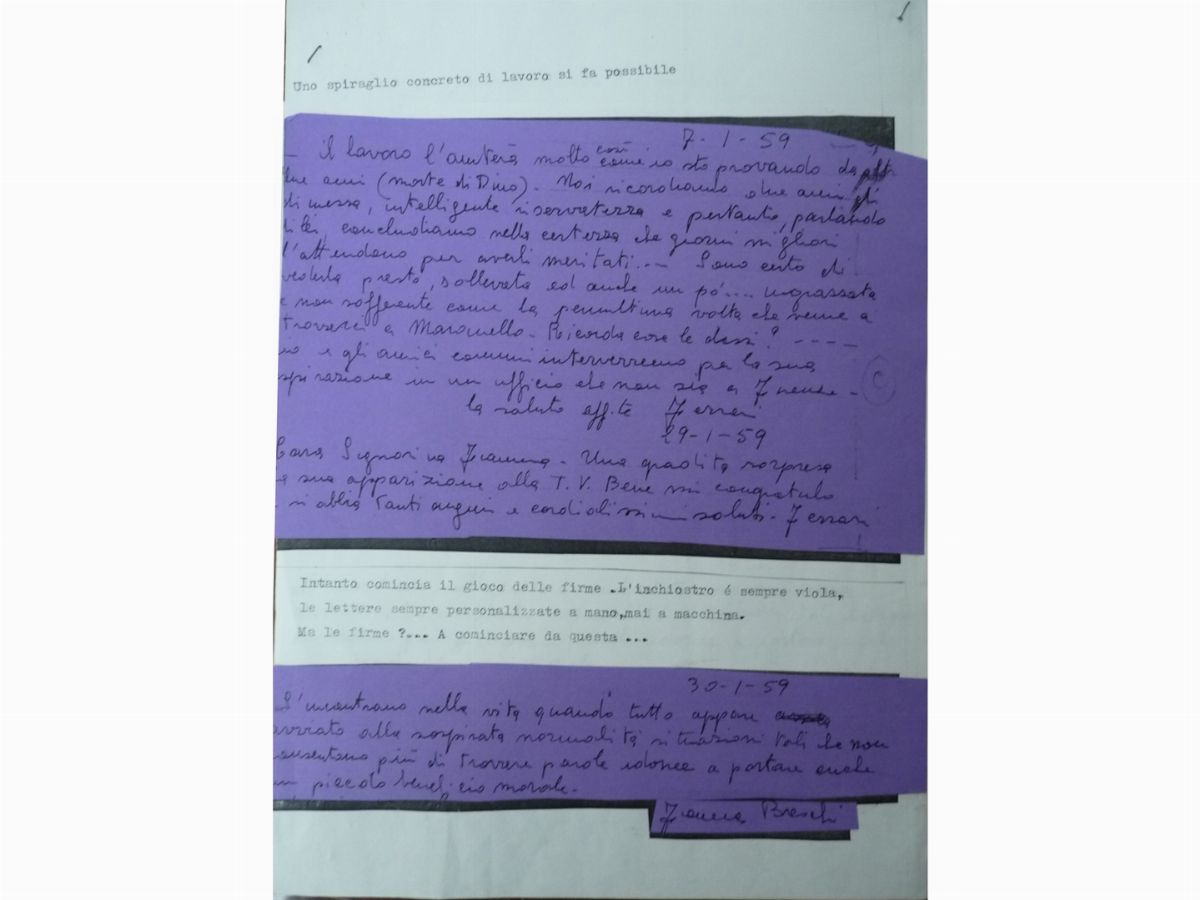 Uno spiraglio concreto di lavoro si fa possibile
7-1-59
- Il lavoro l'aiuterà molto così come io sto provando da
due anni (morte di Dino). Noi ricordiamo due anni di
di messa, intelligente riservatezza e pertanto, parlando
di lei, concludiamo nella certezza che giorni migliori
l'attendano per averli meritati.-- Sono certo di
vederla presto, sollevata ed anche un pó.... ingrassata
e non sofferente come la penultima volta che venne a
trovarci a Maranello. Ricorda cosa le dissi? ----
io e gli amici comuni interverremo per la sua
spirazione in un ufficio che non sia a Firenze -
C
la saluto aff.te Ferrari
29-1-59
Cara Signorina Fiamma - Una gradita sorpresa
la sua apparizione alla T.V. Bene mi congratulo
si abbia tanti auguri e cordialissimi saluti - Ferrari
Intanto comincia il gioco delle firme .L'inchiostro é sempre viola,
le lettere sempre personalizzate a mano,mai a macchina.
Ma le firme ?... A cominciare da questa ...
30-1-59
S'incontrano nella vita quando tutto appare
avviato alla sospirata normalità situazioni tali che non
consentono più di trovare parole idonee a portare anche
un piccolo beneficio morale.-
Fiamma Breschi